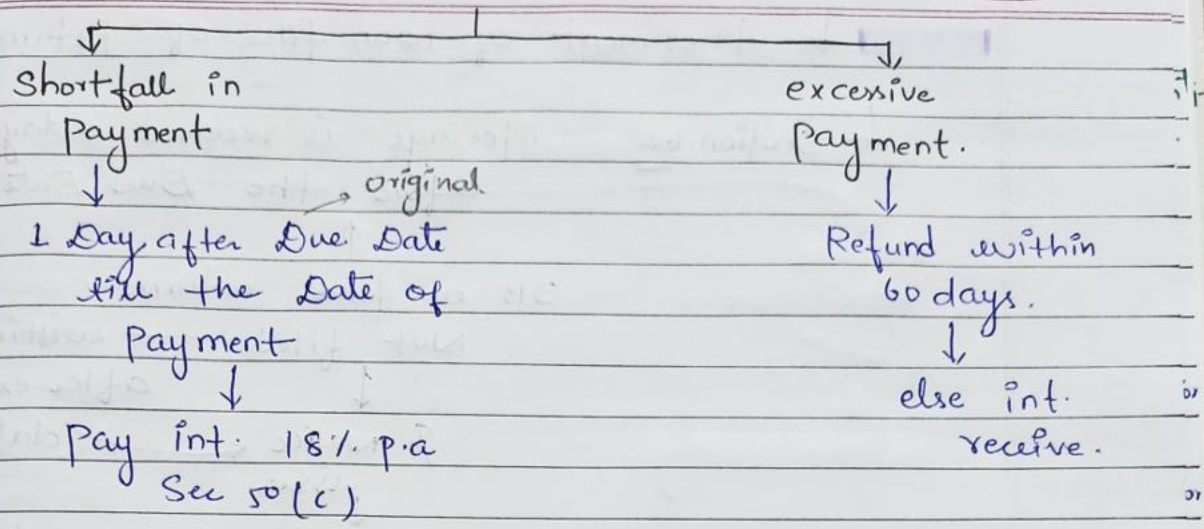 Shortfall in
Payment
original.
1 Day after Due Date
till the Date of
Payment
Pay int. 18% p.a
Sec 50(c)
excessive
Payment.
Refund within
60 days.
else int.
receive.